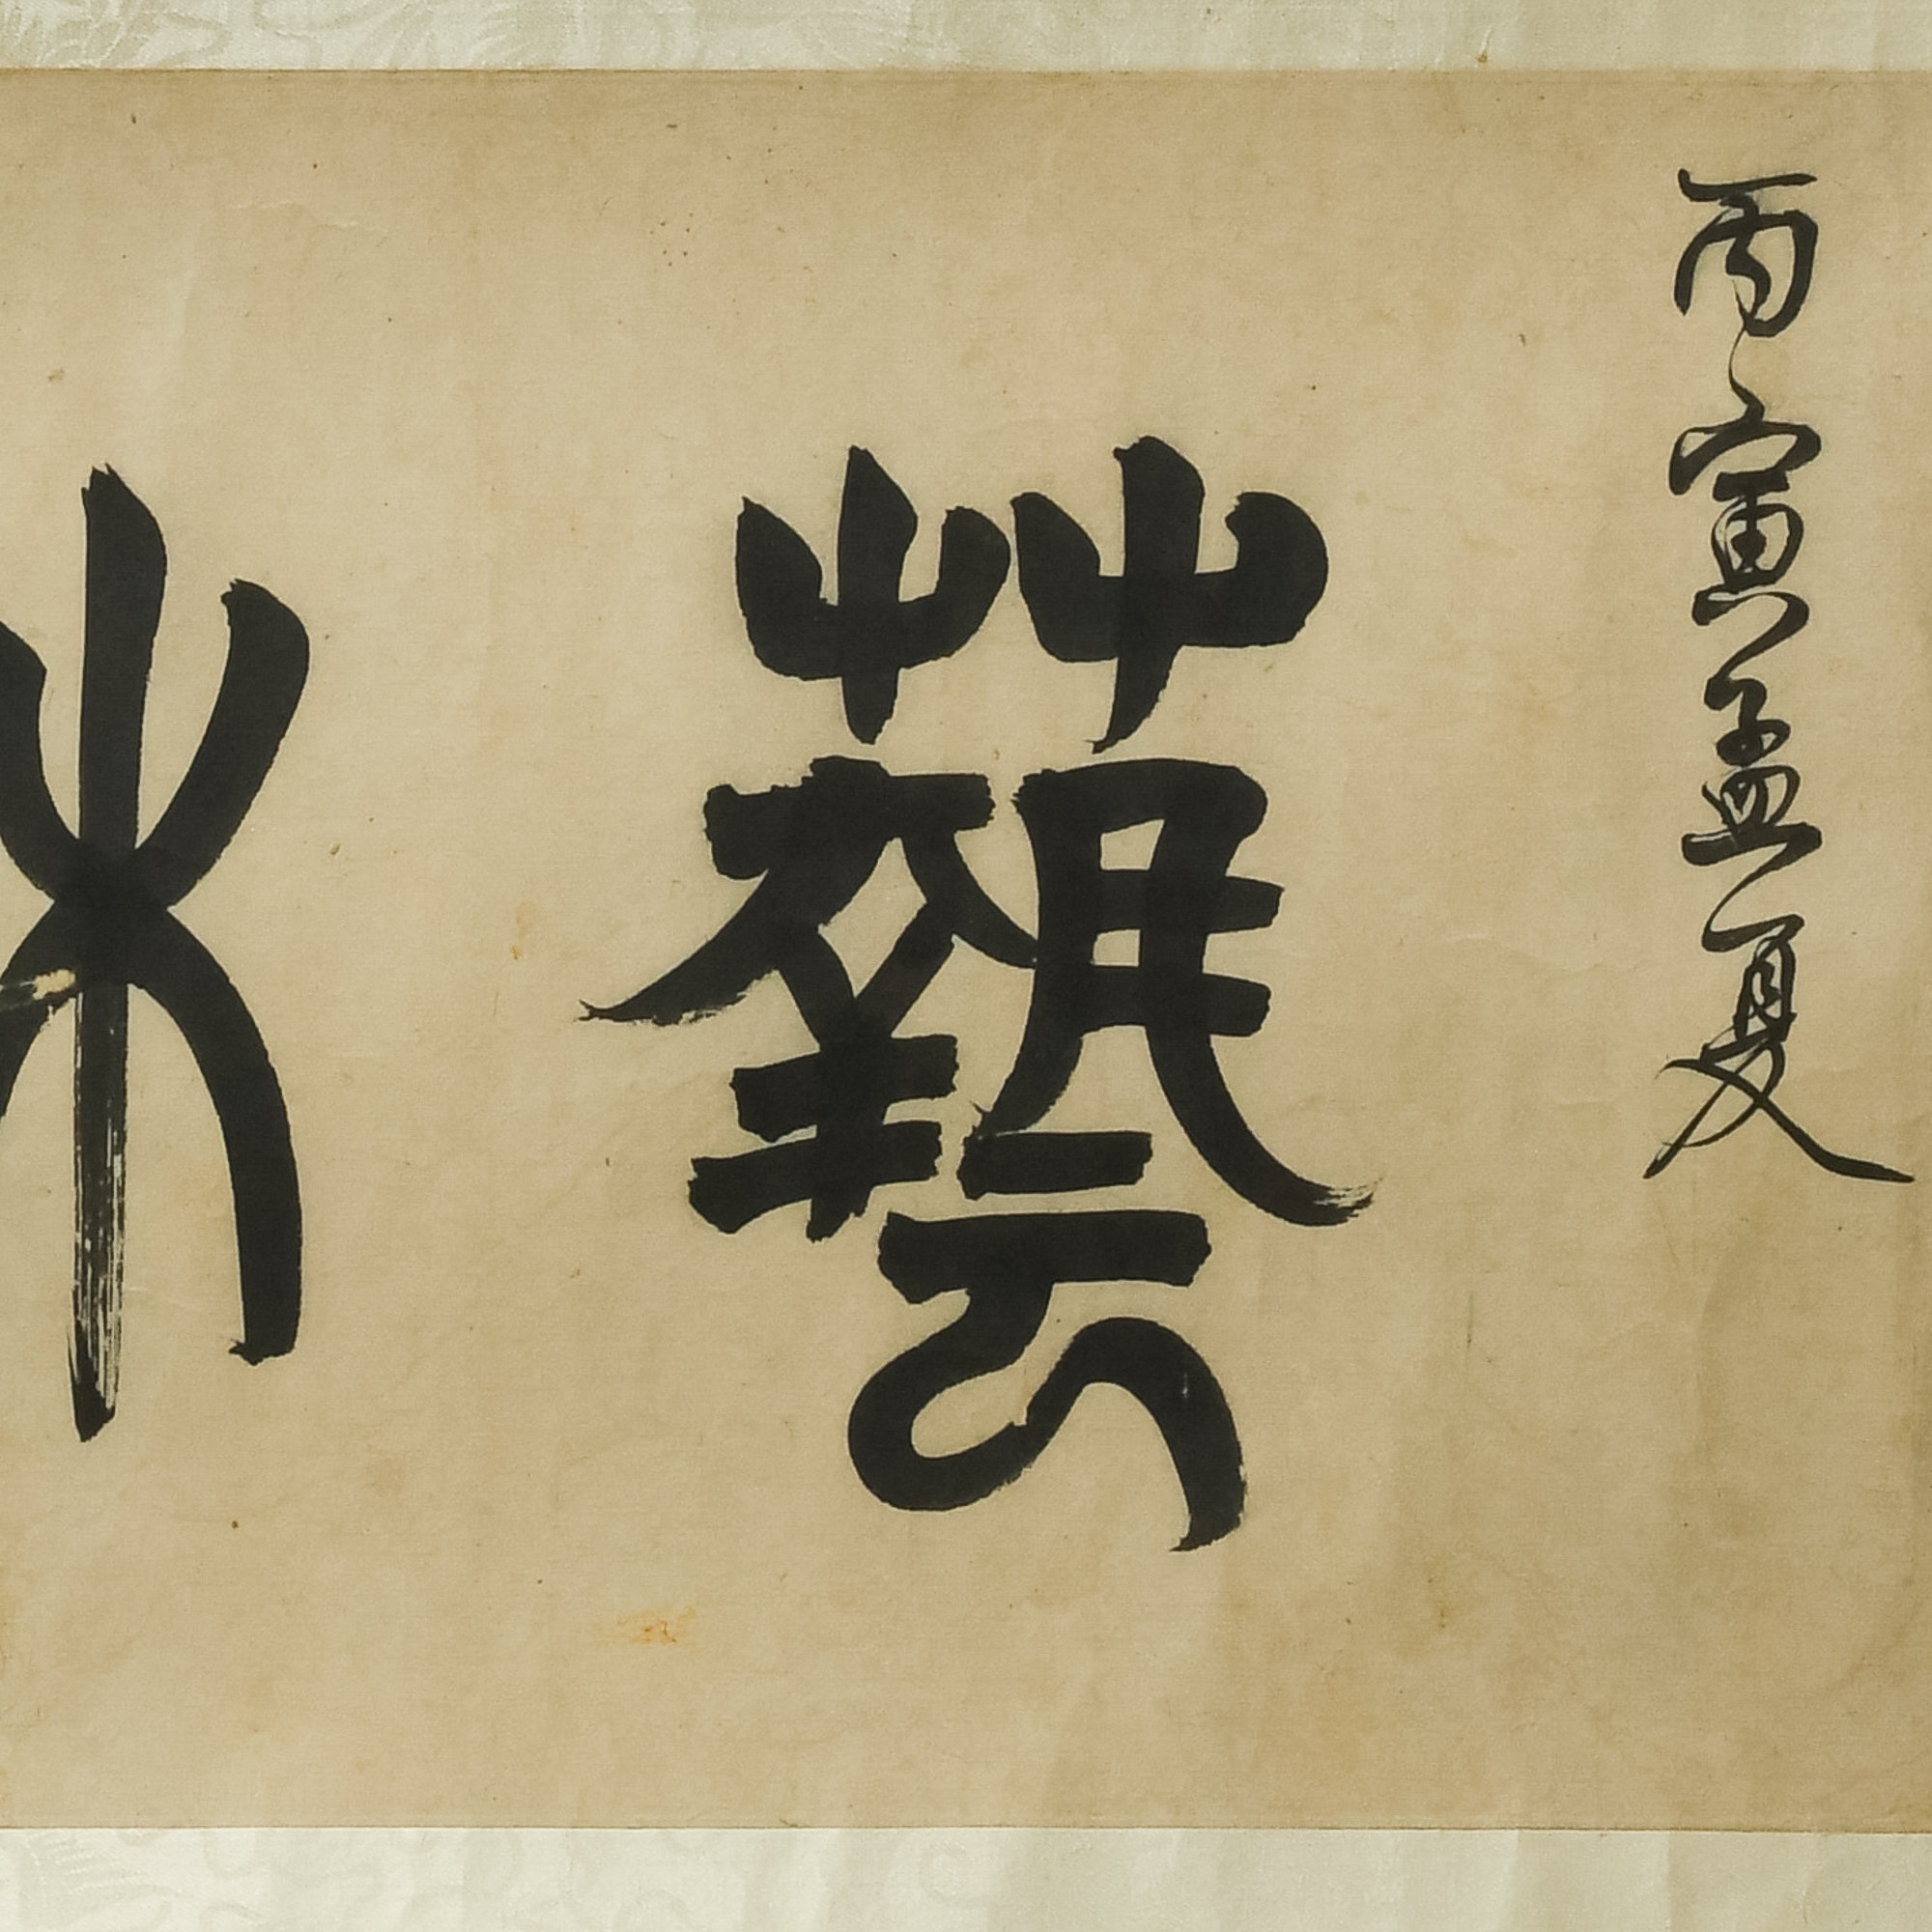 丙寅孟夏
藝